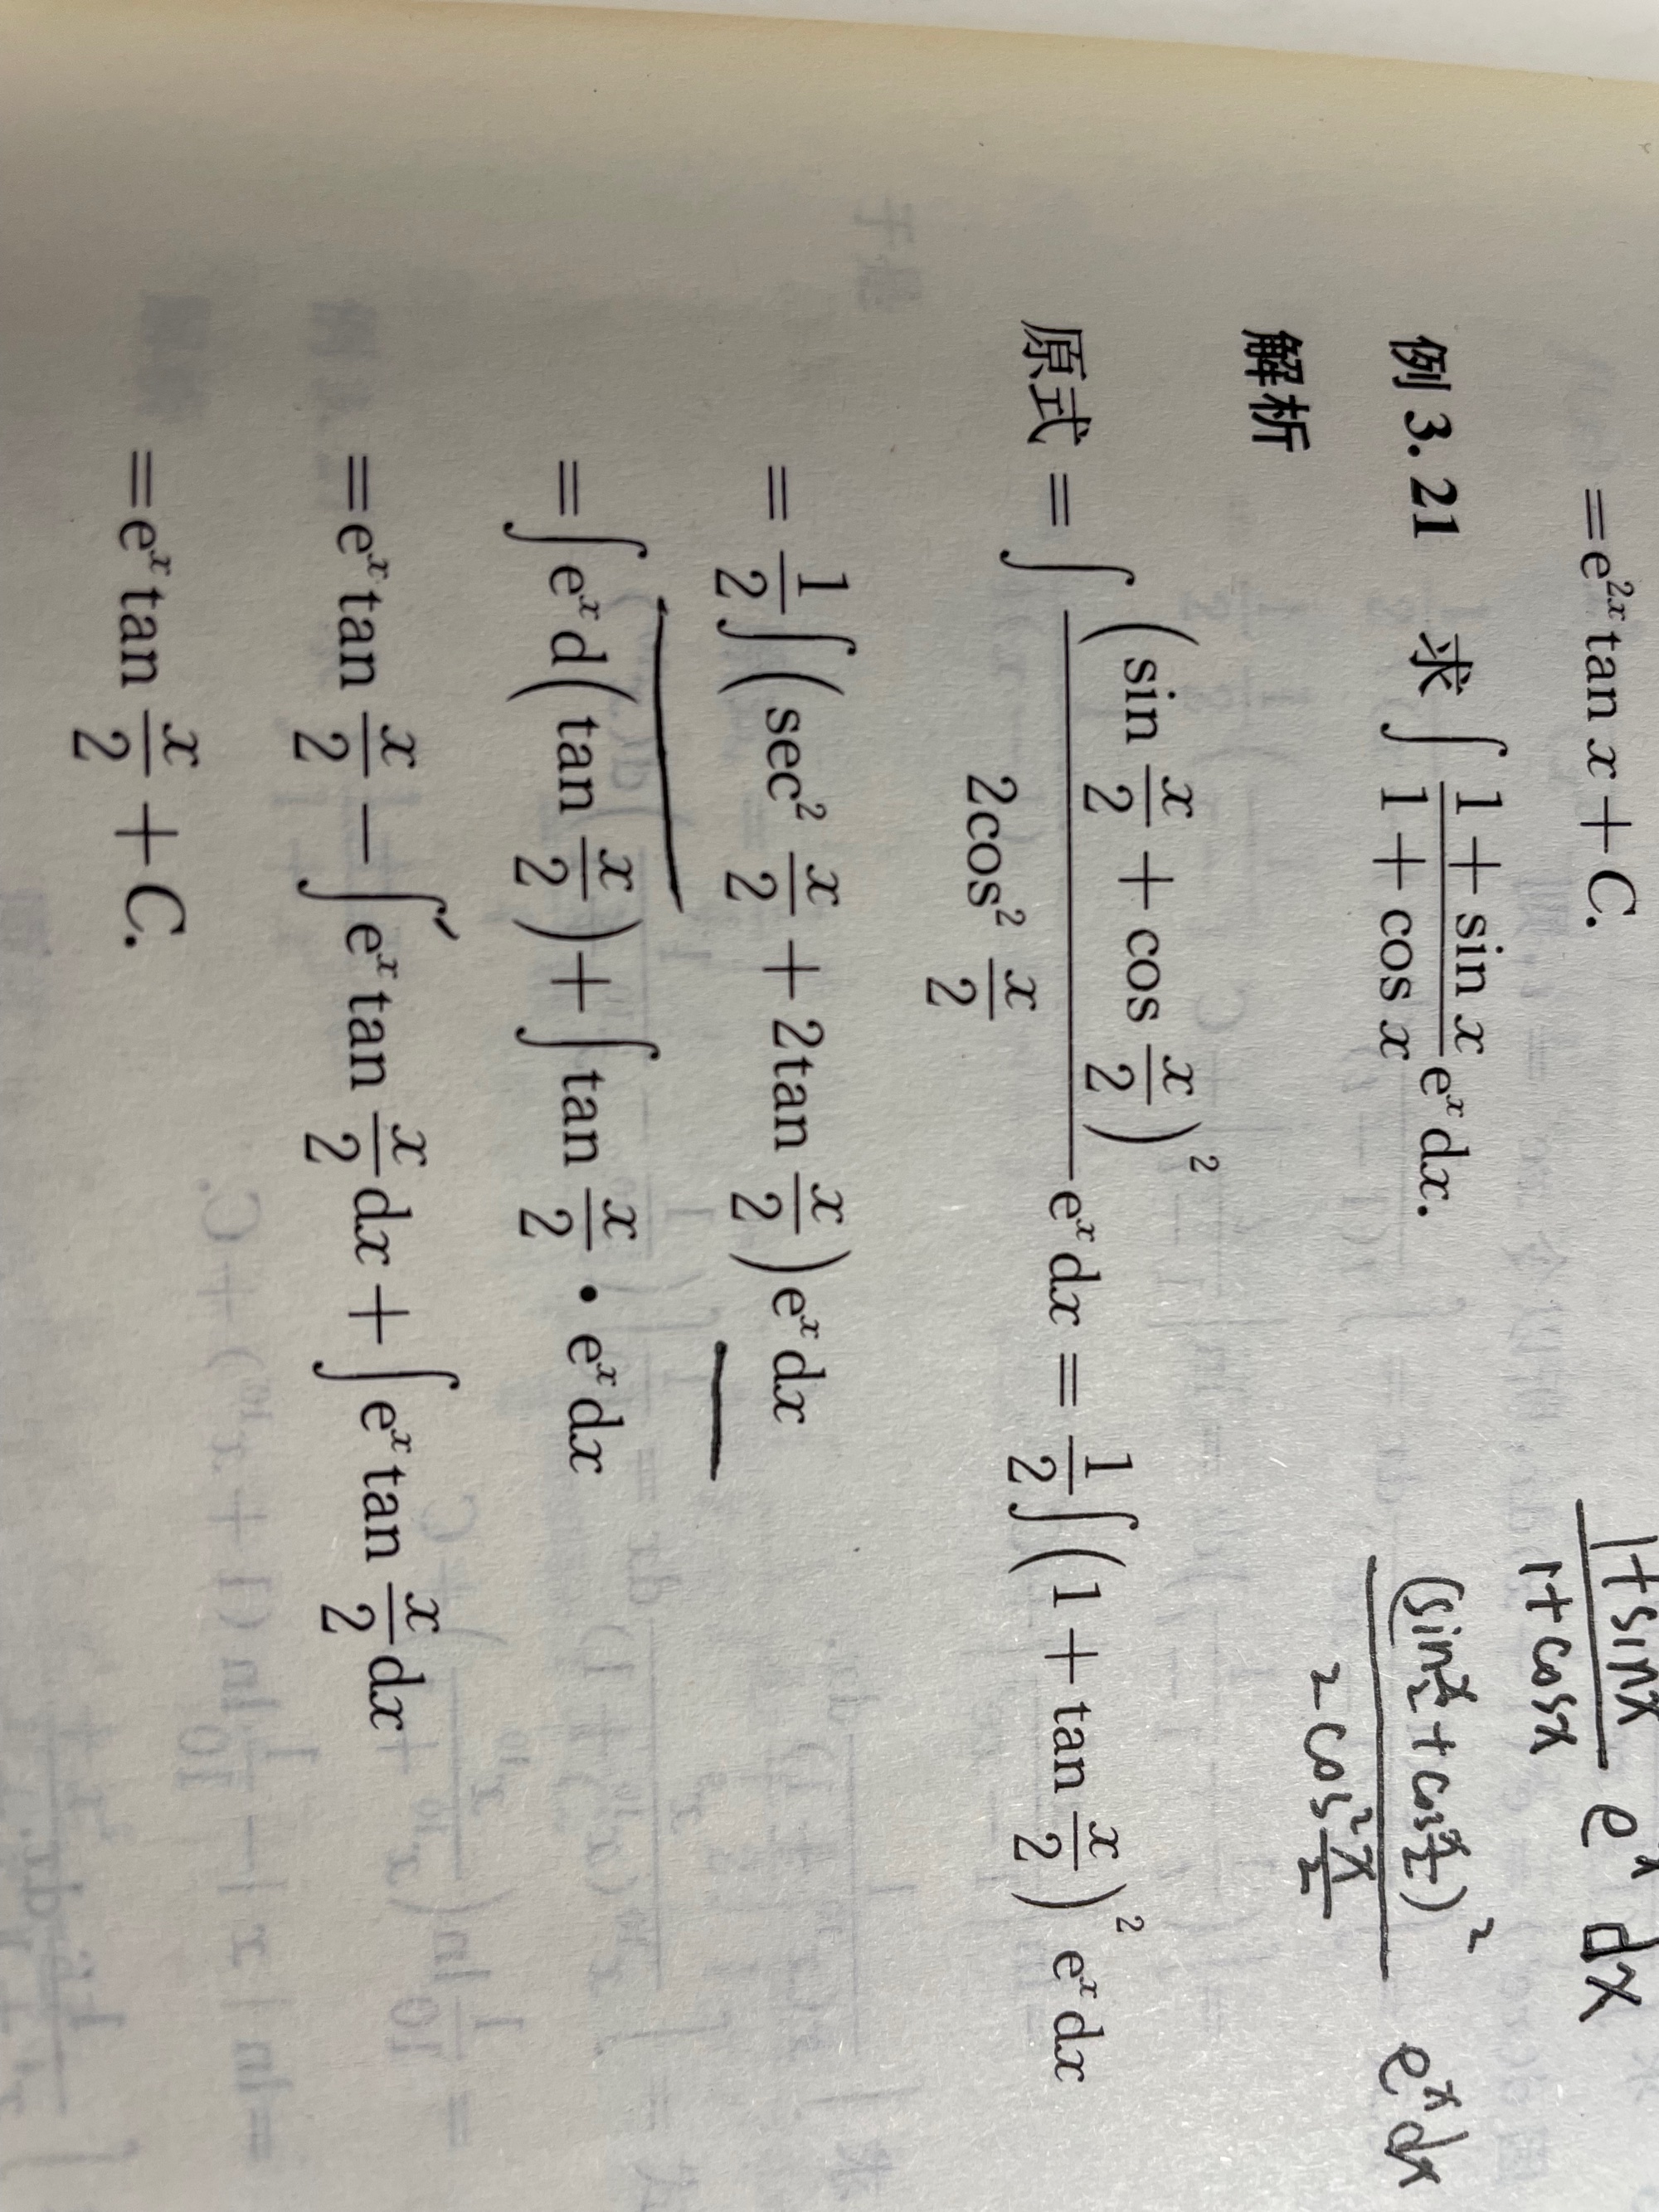 =e^{2x}tan x+C.
例 3.21 求∫\frac{1+sin x}{1+cos x}e^x dx.
\frac{1+sinx}{1+cosx} e^x dx
解析
\frac{(sin\frac{x}{2}+cos\frac{x}{2})^2}{2cos^2\frac{x}{2}} e^x dx
原式 = ∫\frac{(sin\frac{x}{2}+cos\frac{x}{2})^2}{2cos^2\frac{x}{2}}e^x dx = \frac{1}{2}∫(1+tan\frac{x}{2})^2 e^x dx
= \frac{1}{2}∫(sec^2\frac{x}{2}+2tan\frac{x}{2})e^x dx
= ∫e^x d(tan\frac{x}{2})+∫tan\frac{x}{2}·e^x dx
=e^x tan\frac{x}{2}-∫e^x tan\frac{x}{2}dx+∫e^x tan\frac{x}{2}dx
=e^x tan\frac{x}{2}+C.